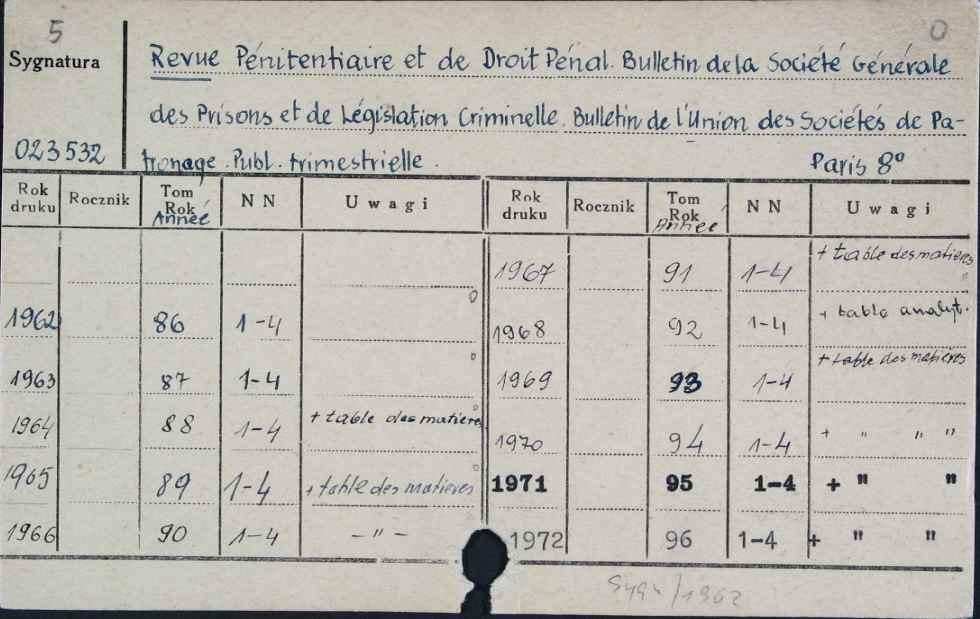 5 0
Sygnatura Revue Pénitentiaire et de Droit Pénal. Bulletin de la Société Générale
des Prisons et de Législation Criminelle. Bulletin de l'Union des Sociétés de Pa-
023532 tronage. Publ. trimestrielle. Paris 8°
Rok druku Rocznik Tom Rok Année NN Uwagi Rok druku Rocznik Tom Rok Année NN Uwagi
1967 91 1-4 + table des matières
1962 86 1-4 1968 92 1-4 + table analyt.
1963 87 1-4 1969 93 1-4 + table des matières
1964 88 1-4 + table des matières 1970 94 1-4 + " " "
1965 89 1-4 + table des matières 1971 95 1-4 + " "
1966 90 1-4 - " - 1972 96 1-4 + " "
/1962